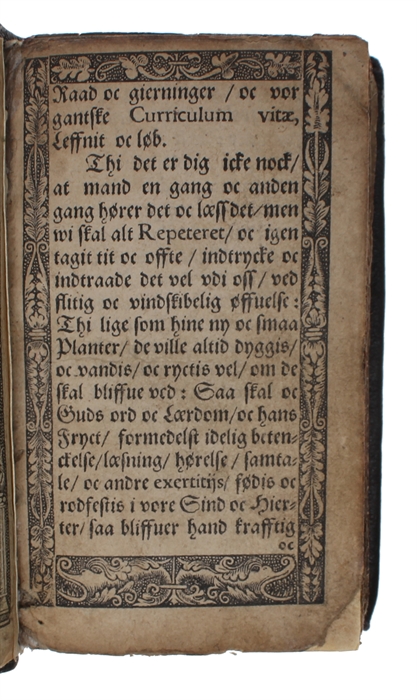 Raad oc gierninger / oc vor
gantske Curriculum vitæ,
Leffnit oc løb.
Thi det er dig icke nock/
at mand en gang oc anden
gang hører det oc læss det/men
wi skal alt Repeteret/ oc igen
tagit tit oc offte / indtrycke oc
indtraade det vel vdi oss/ ved
flitig oc vindskibelig øffuelse:
Thi lige som hine ny oc smaa
Planter/ de ville altid dyggis/
oc vandis/ oc ryctis vel/ om de
skal bliffue ved: Saa skal oc
Guds ord oc Lærdom/oc hans
Fryct/ formedelst idelig beten-
ckelse/læsning/ hørelse / samta-
le/ oc andre exertitijs/ fødis oc
rodfestis i vore Sind oc Hier-
ter/ saa bliffuer hand krafftig
oc